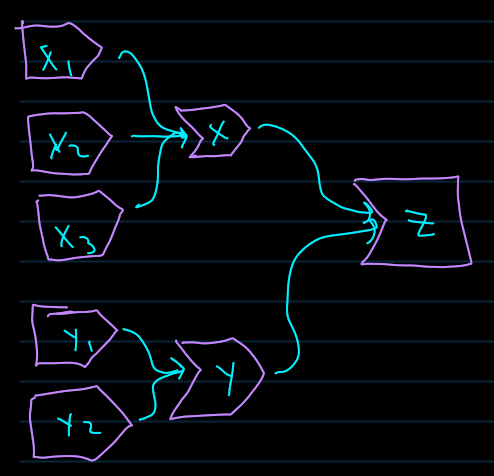 X1
X2
X3
X
Z
Y1
Y2
Y